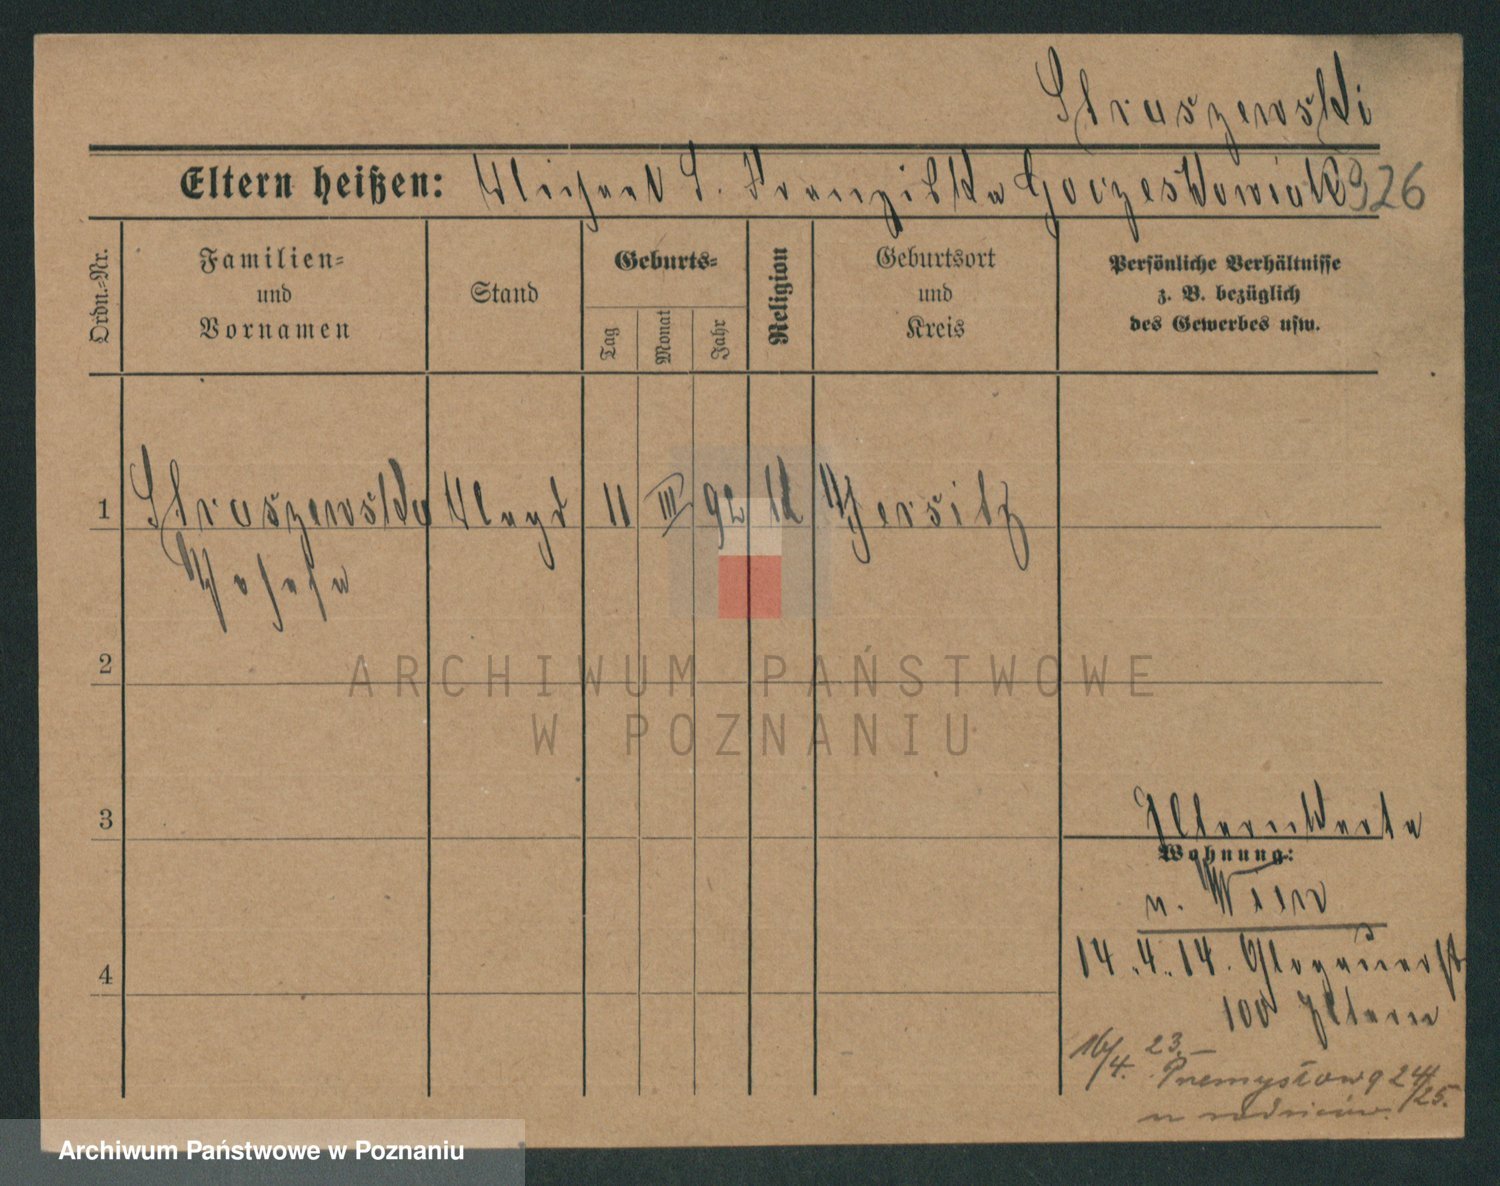 Straszewski
Eltern heißen: Michael S. Franziska 926
Ordn.-Nr.
Familien-
und
Vornamen
Stand
Geburts-
Tag
Monat
Jahr
Religion
Geburtsort
und
Kreis
Persönliche Verhältnisse
z. B. bezüglich
des Gewerbes usw.
1 Straszewska Magd 11 III 92 k Jersitz
Josefa
2
ARCHIWUM PAŃSTWOWE
W POZNANIU
3
Elternkarte
Wohnung:
n. Wien
4
14.4.14. Glogauerst
100 Eltern
16/4. 23.
Przemysłowa 24/25.
u rodziców.
Archiwum Państwowe w Poznaniu